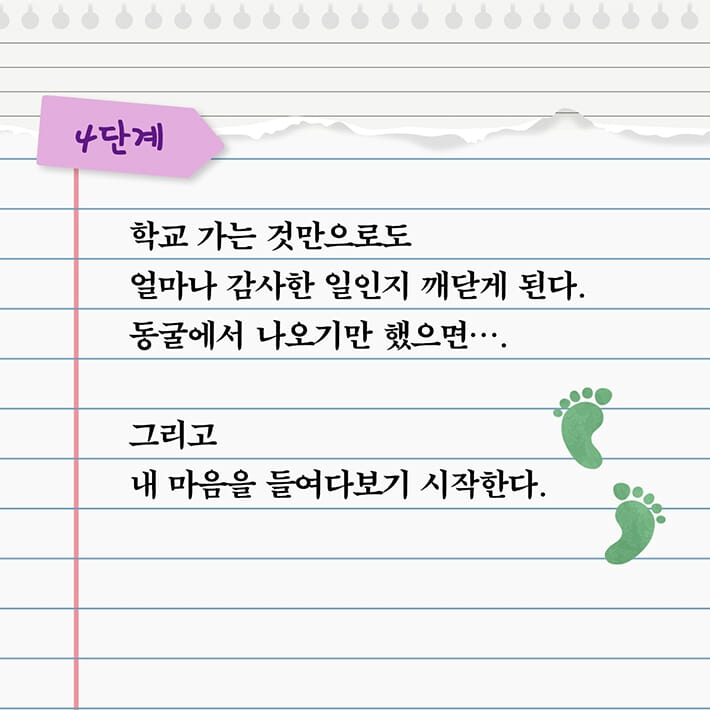 4단계
학교 가는 것만으로도
얼마나 감사한 일인지 깨닫게 된다.
동굴에서 나오기만 했으면….
그리고
내 마음을 들여다보기 시작한다.